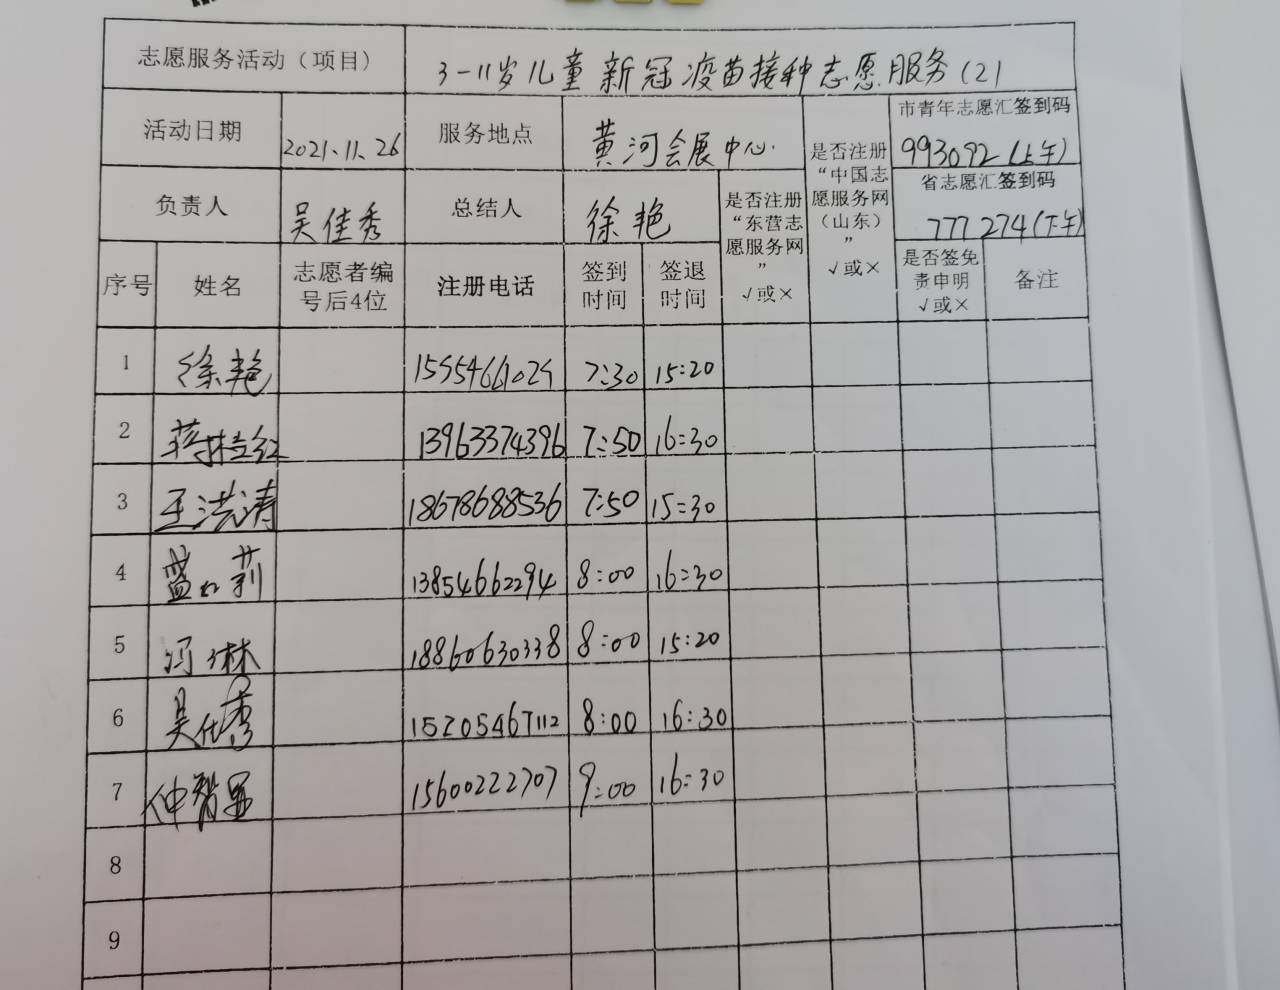 志愿服务活动（项目） 3-11岁儿童新冠疫苗接种志愿服务(2)
活动日期 2021.11.26 服务地点 黄河会展中心. 是否注册“中国志愿服务网（山东）”√或× 市青年志愿汇签到码
993092(上午)
负责人 吴佳秀 总结人 徐艳 是否注册“东营志愿服务网”√或× 省志愿汇签到码
777274(下午)
序号 姓名 志愿者编号后4位 注册电话 签到时间 签退时间 是否签免责申明√或× 备注
1 徐艳 7:30 15:20
2 蒋桂红 13963374396 7:50 16:30
3 王洪涛 18678688536 7:50 15:30
4 13854662294 8:00 16:30
5 冯琳 18860630338 8:00 15:20
6 吴佳秀 15205467112 8:00 16:30
7 15600222707 9:00 16:30
8
9